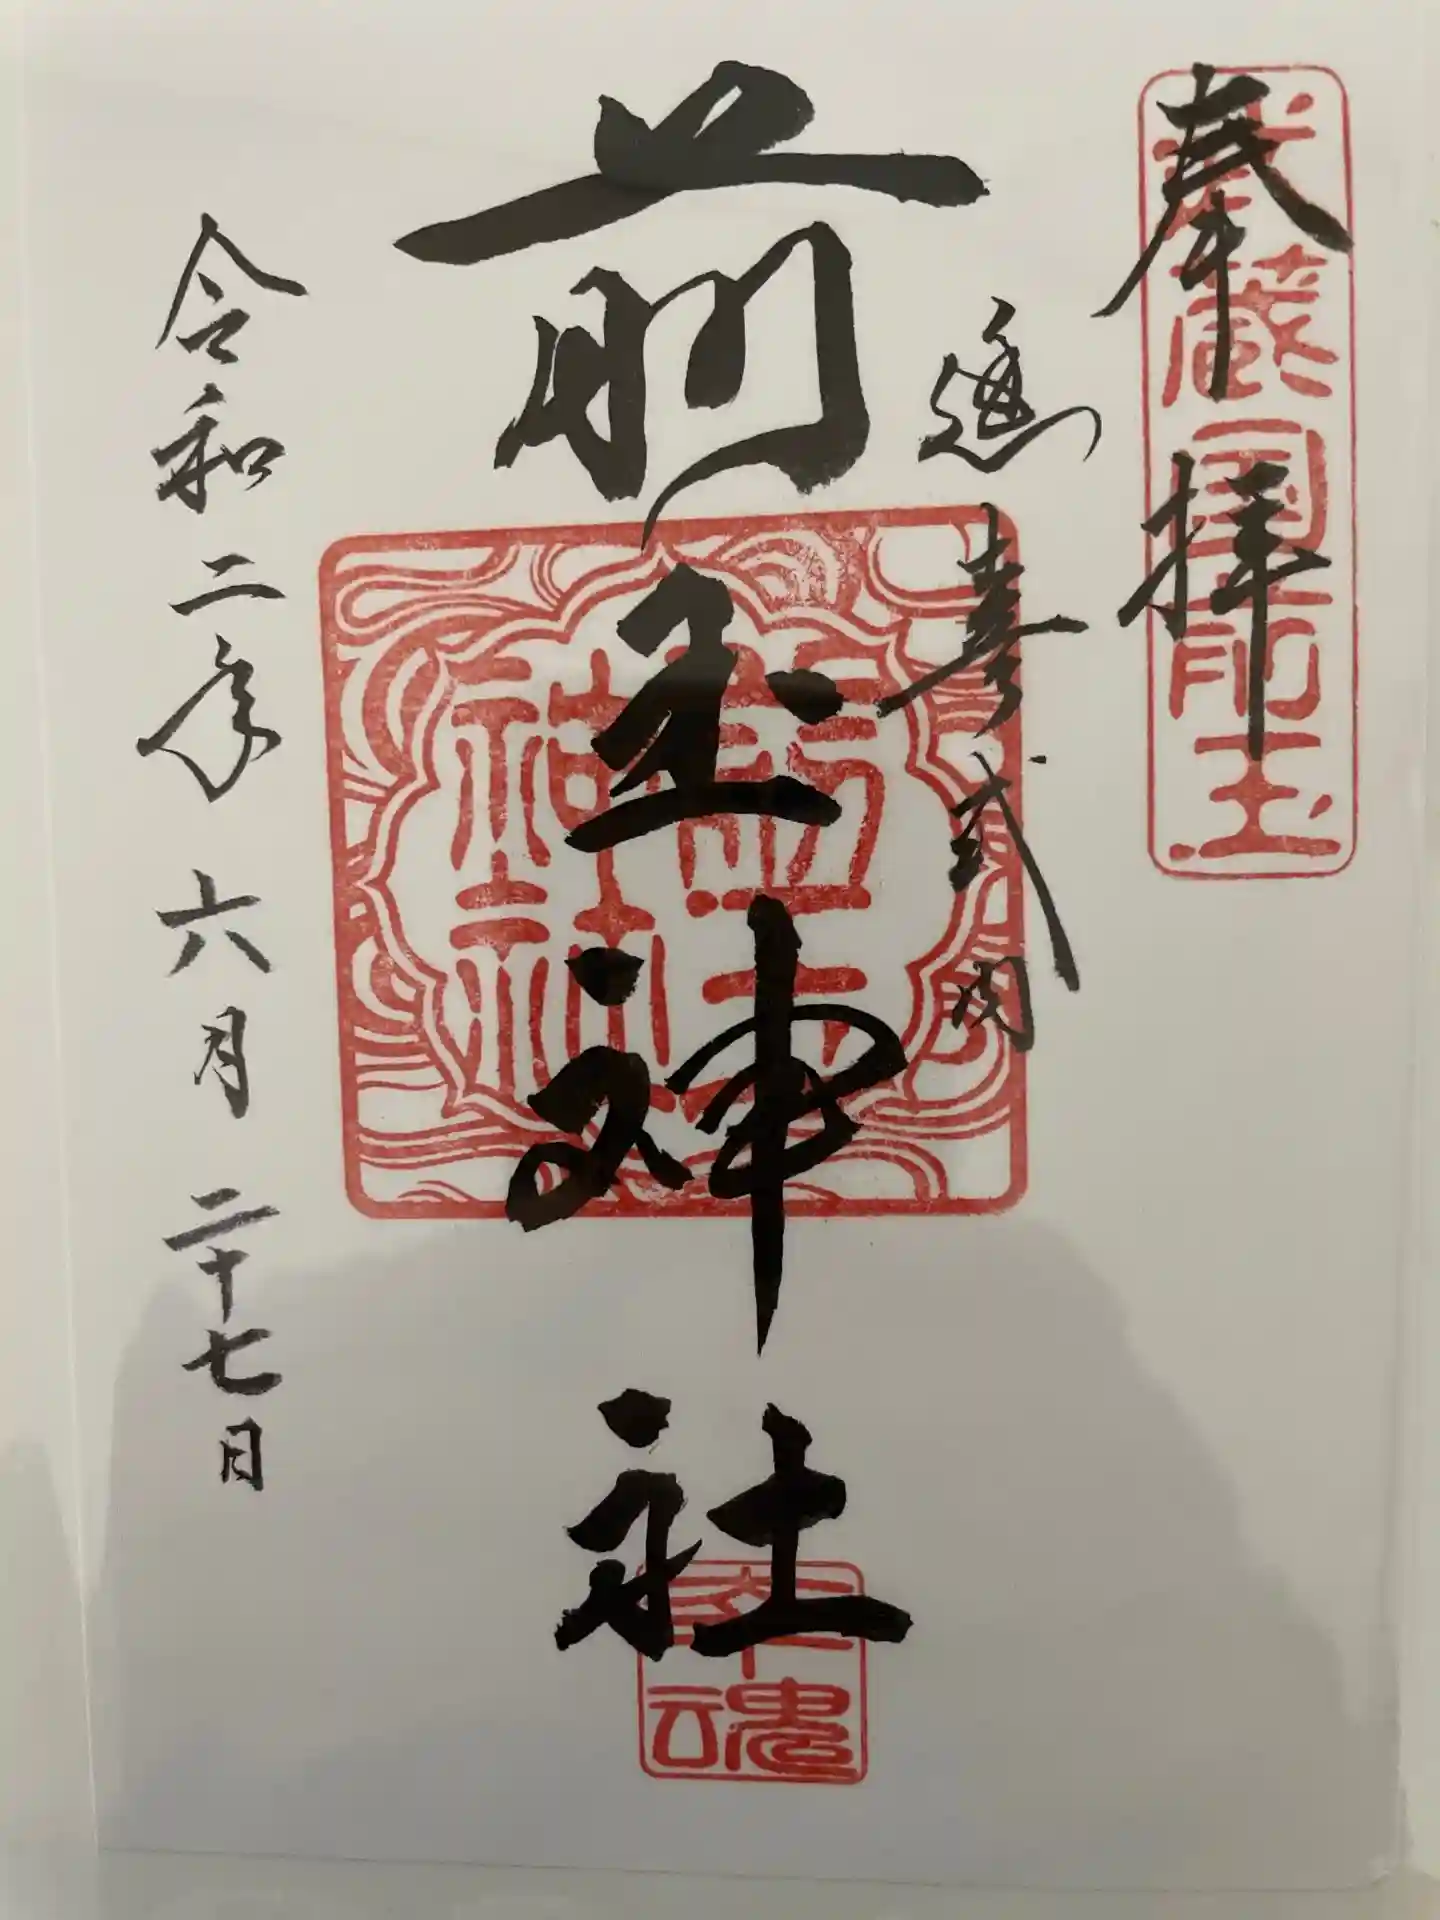 奉拝
武蔵国前玉
延喜式内
前玉神社
前玉
神社
幸魂
令和二年六月二十七日